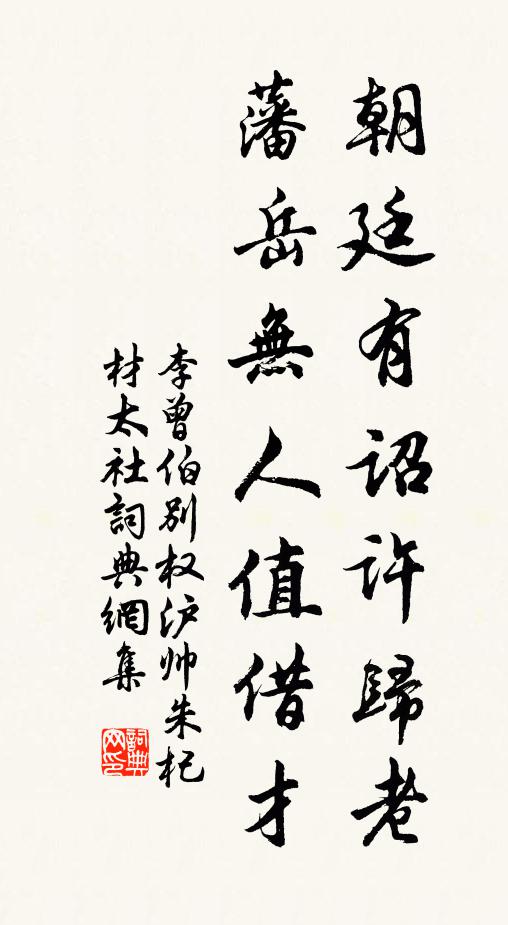 朝廷有詔許歸老
藩岳無人值借才
李曾伯別权泸帅朱杞
材太社詞典網集
詞典网印